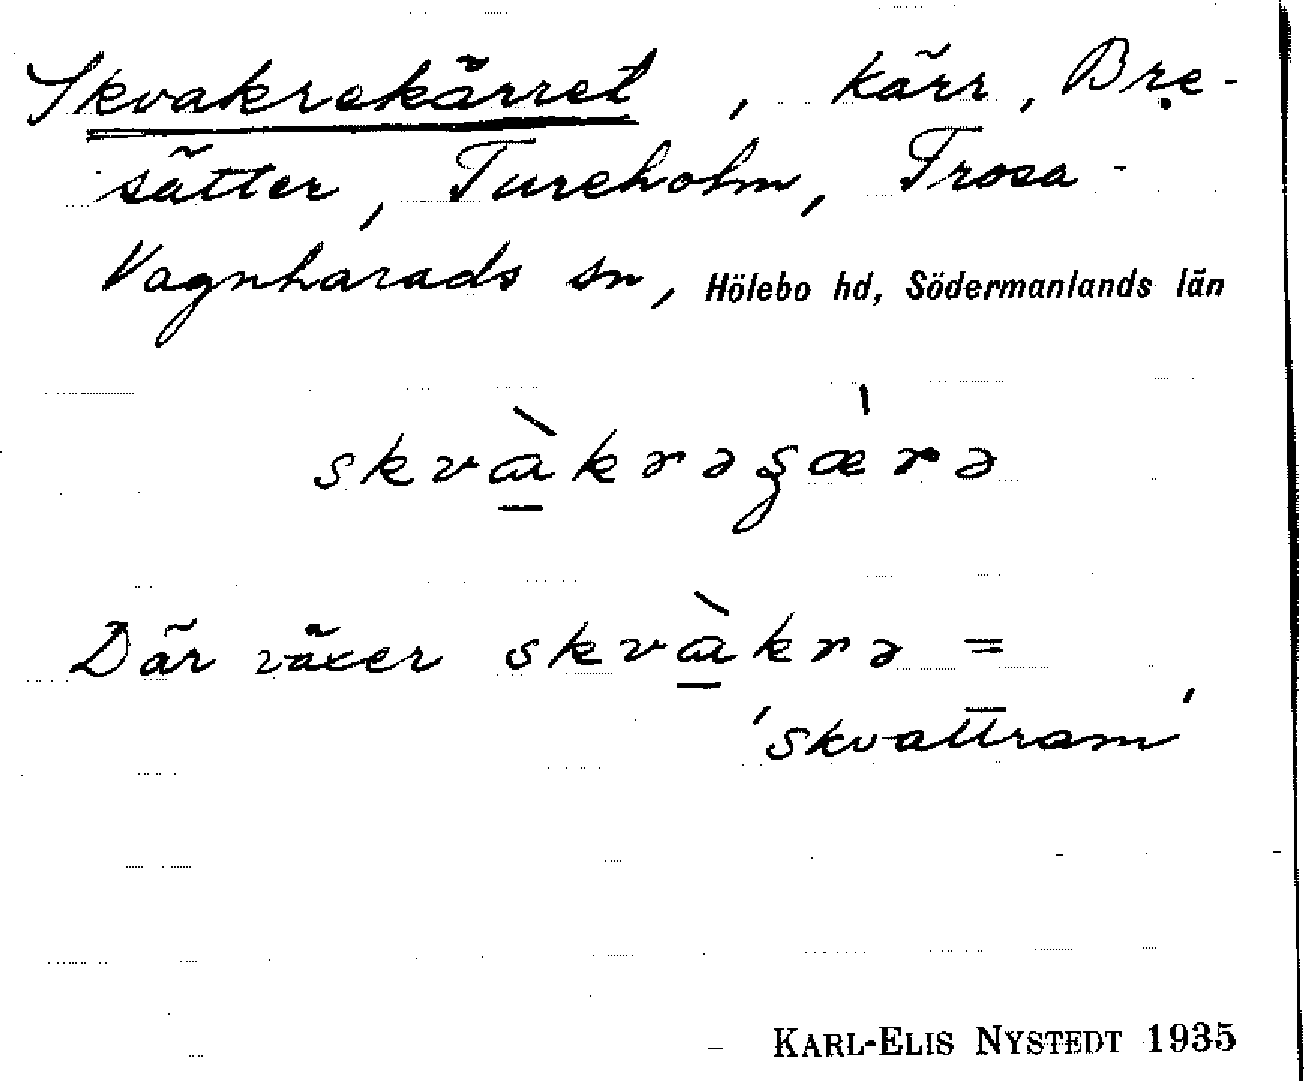 Skvakrekärret, kärr, Bre-
sätter, Tureholm, Trosa-
Vagnhärads sn, Hölebo hd, Södermanlands län
skvà̱krəʂæ̀rə
Där växer skvà̱krə =
'skvattram'
KARL-ELIS NYSTEDT 1935